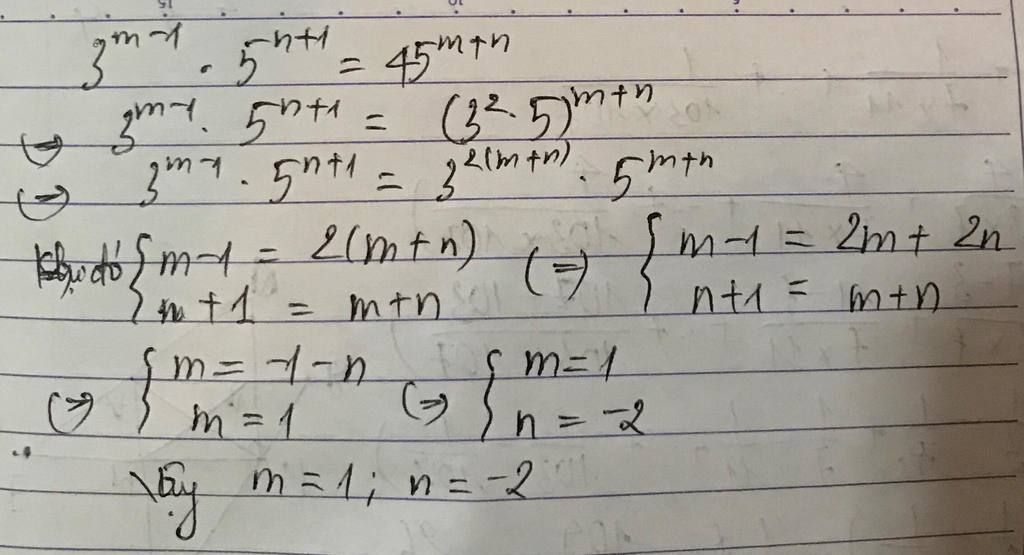 3^{m-1} · 5^{n+1} = 45^{m+n}
⇔ 3^{m-1} · 5^{n+1} = (3^2 · 5)^{m+n}
⇔ 3^{m-1} · 5^{n+1} = 3^{2(m+n)} · 5^{m+n}
do đó { m-1 = 2(m+n) ; n+1 = m+n (⇔) { m-1 = 2m + 2n ; n+1 = m+n
⇔ { m = -1-n ; m = 1 ⇔ { m = 1 ; n = -2
Vậy m = 1; n = -2